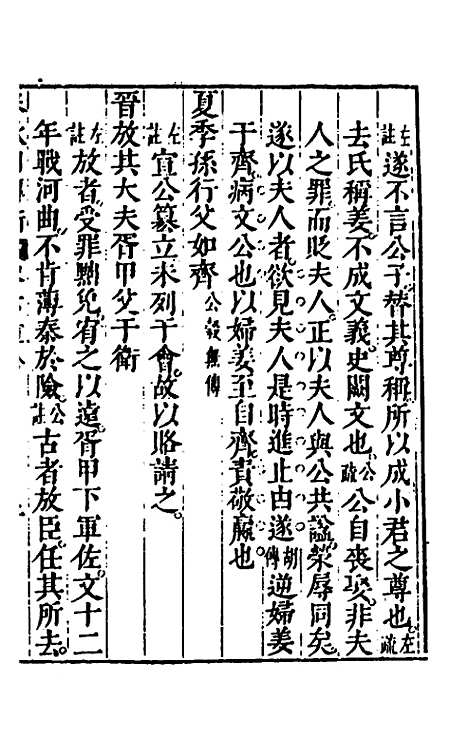 左註遂不言公子替其尊稱所以成小君之尊也左疏
去氏稱姜不成文義史闕文也公疏公自喪娶非夫
人之罪而貶夫人正以夫人與公共謚榮辱同矣
遂以夫人者欲見夫人是時進止由遂胡傳逆婦姜
于齊病文公也以婦姜至自齊責敬嬴也
夏季孫行父如齊公穀無傳
左註宣公篡立未列于會故以賂請之
晉放其大夫胥甲父于衛
左註放者受罪黜免宥之以遠胥甲下軍佐文十二
年戰河曲不肯薄秦於險公註古者放臣任其所去